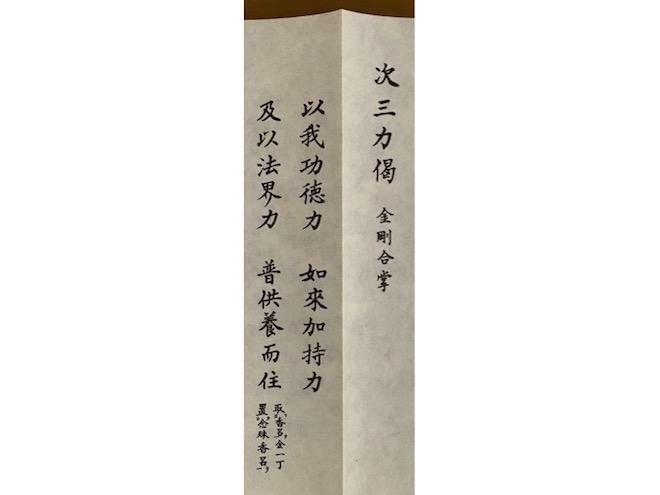 次三力偈 金剛合掌
以我功德力 如來加持力
及以法界力 普供養而住
取香呂金一丁
置念珠香呂